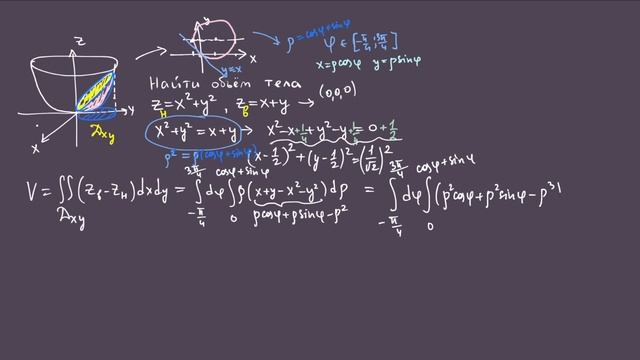 z
x
y
D_xy
y
x
y=x
ρ=cosφ+sinφ
φ∈[-π/4; 3π/4]
x=ρcosφ y=ρsinφ
Найти объём тела
z_н=x²+y², z_в=x+y → (0,0,0)
x²+y²=x+y → x²-x+1/4+y²-y+1/4=0+1/2
ρ²=ρ(cosφ+sinφ) (x-1/2)²+(y-1/2)²=(1/√2)²
V=∬_{D_xy}(z_в-z_н)dxdy = ∫_{-π/4}^{3π/4}dφ∫_0^{cosφ+sinφ}ρ(x+y-x²-y²)dρ = ∫_{-π/4}^{3π/4}dφ∫_0^{cosφ+sinφ}(ρ²cosφ+ρ²sinφ-ρ³)
ρcosφ+ρsinφ-ρ²